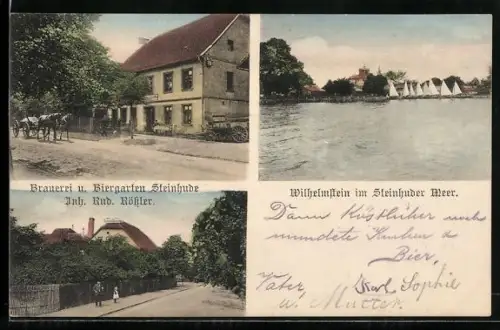 Brauerei u. Biergarten Steinhude
Inh. Rud. Rößler.
Wilhelmstein im Steinhuder Meer.
Dann Küstlicher
mundete Kuchen &
Bier,
Vater Karl Sophie
u. Mutter.